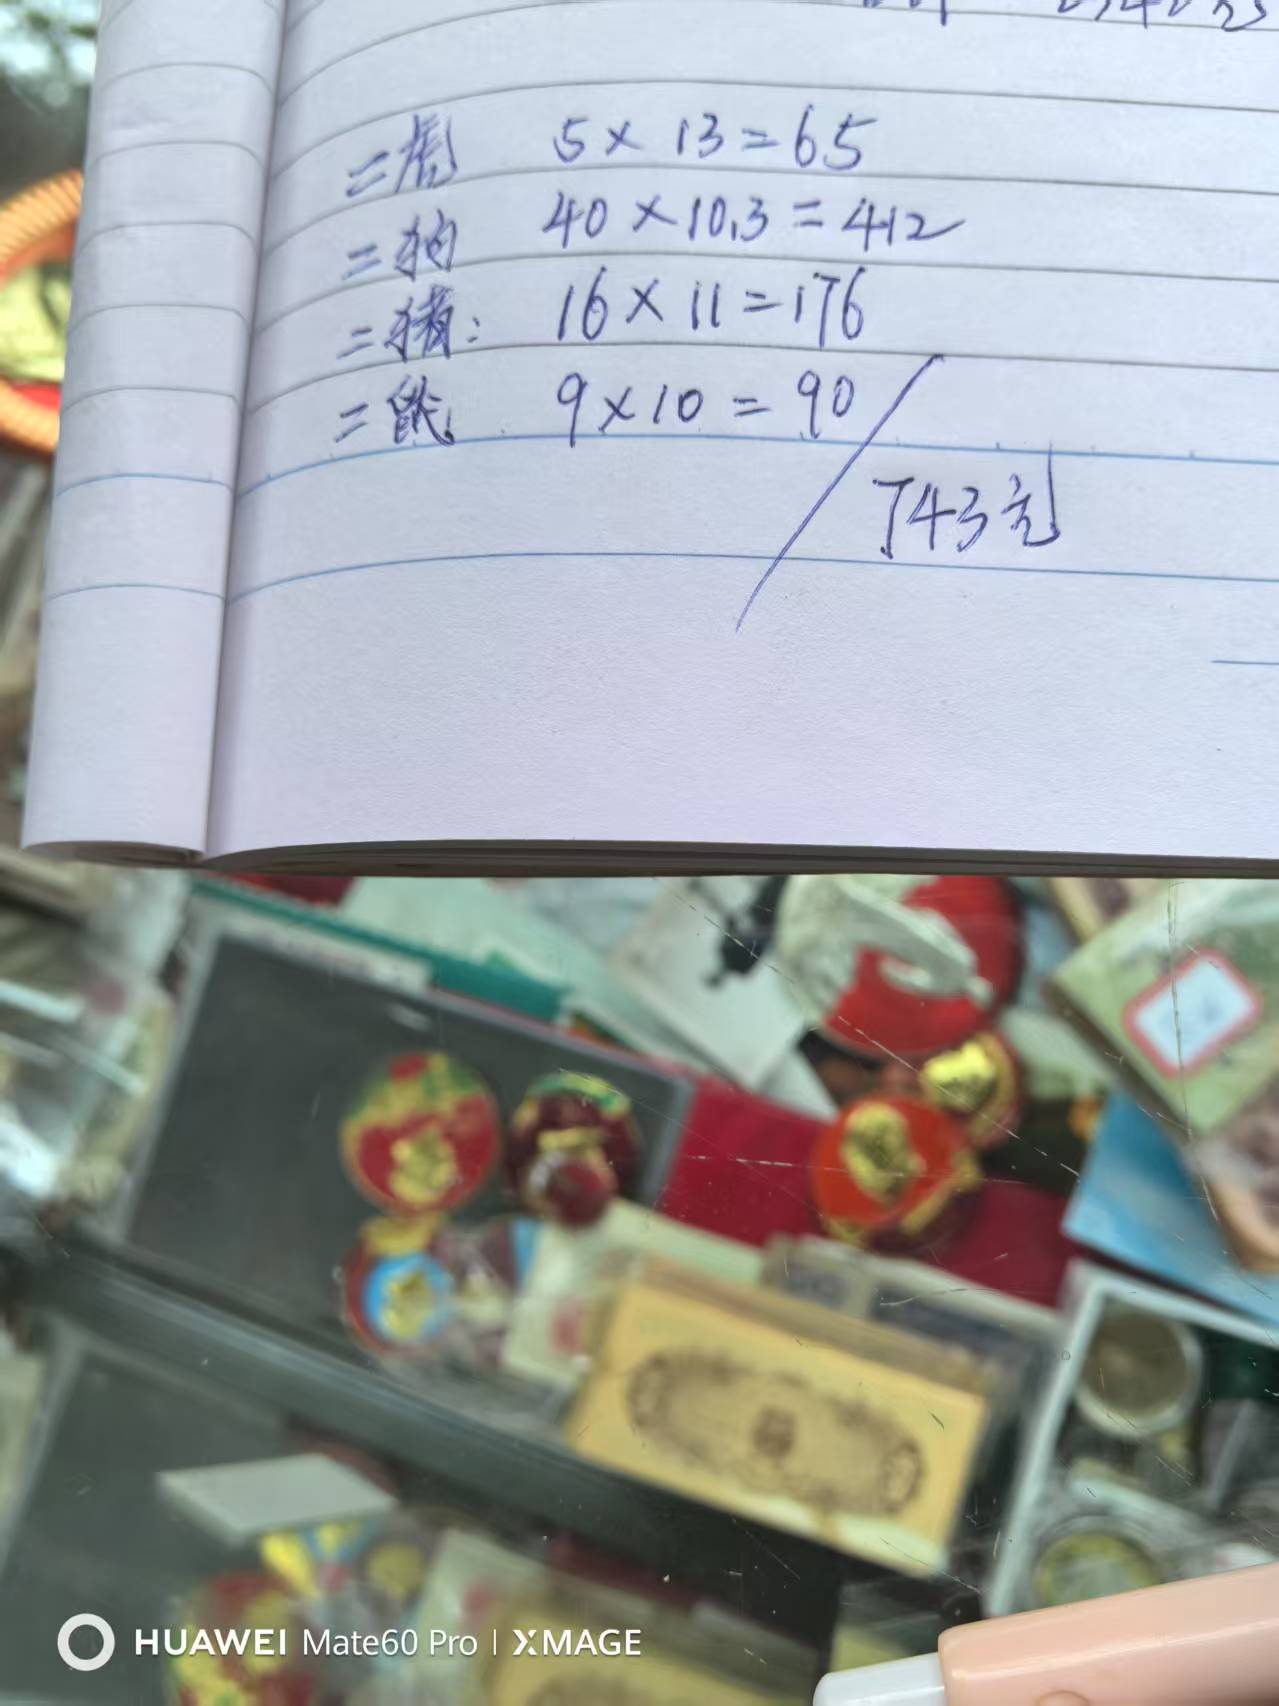 二虎 5×13=65
二狗 40×10.3=412
二猪: 16×11=176
二鼠 9×10=90
743元
HUAWEI Mate60 Pro | XMAGE